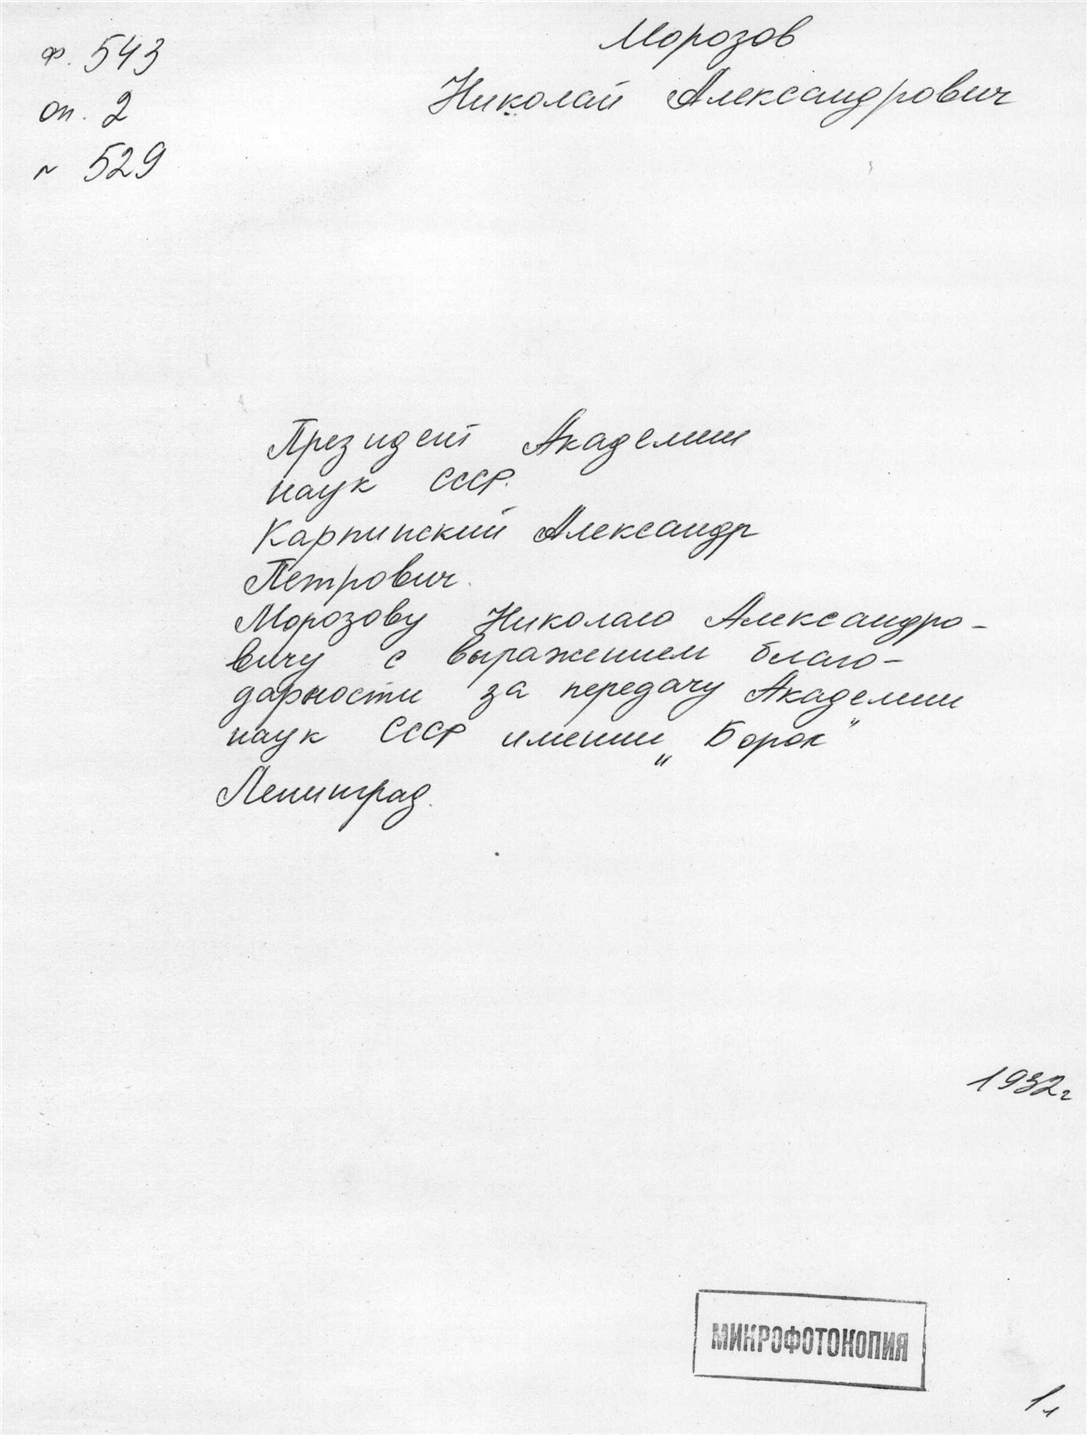 ф. 543
оп. 2
N 529
Морозов
Николай Александрович
Президент Академии
наук СССР.
Карпинский Александр
Петрович.
Морозову Николаю Александро-
вичу с выражением благо-
дарности за передачу Академии
наук СССР имении „Борок"
Ленинград.
1932г
МИКРОФОТОКОПИЯ
1л